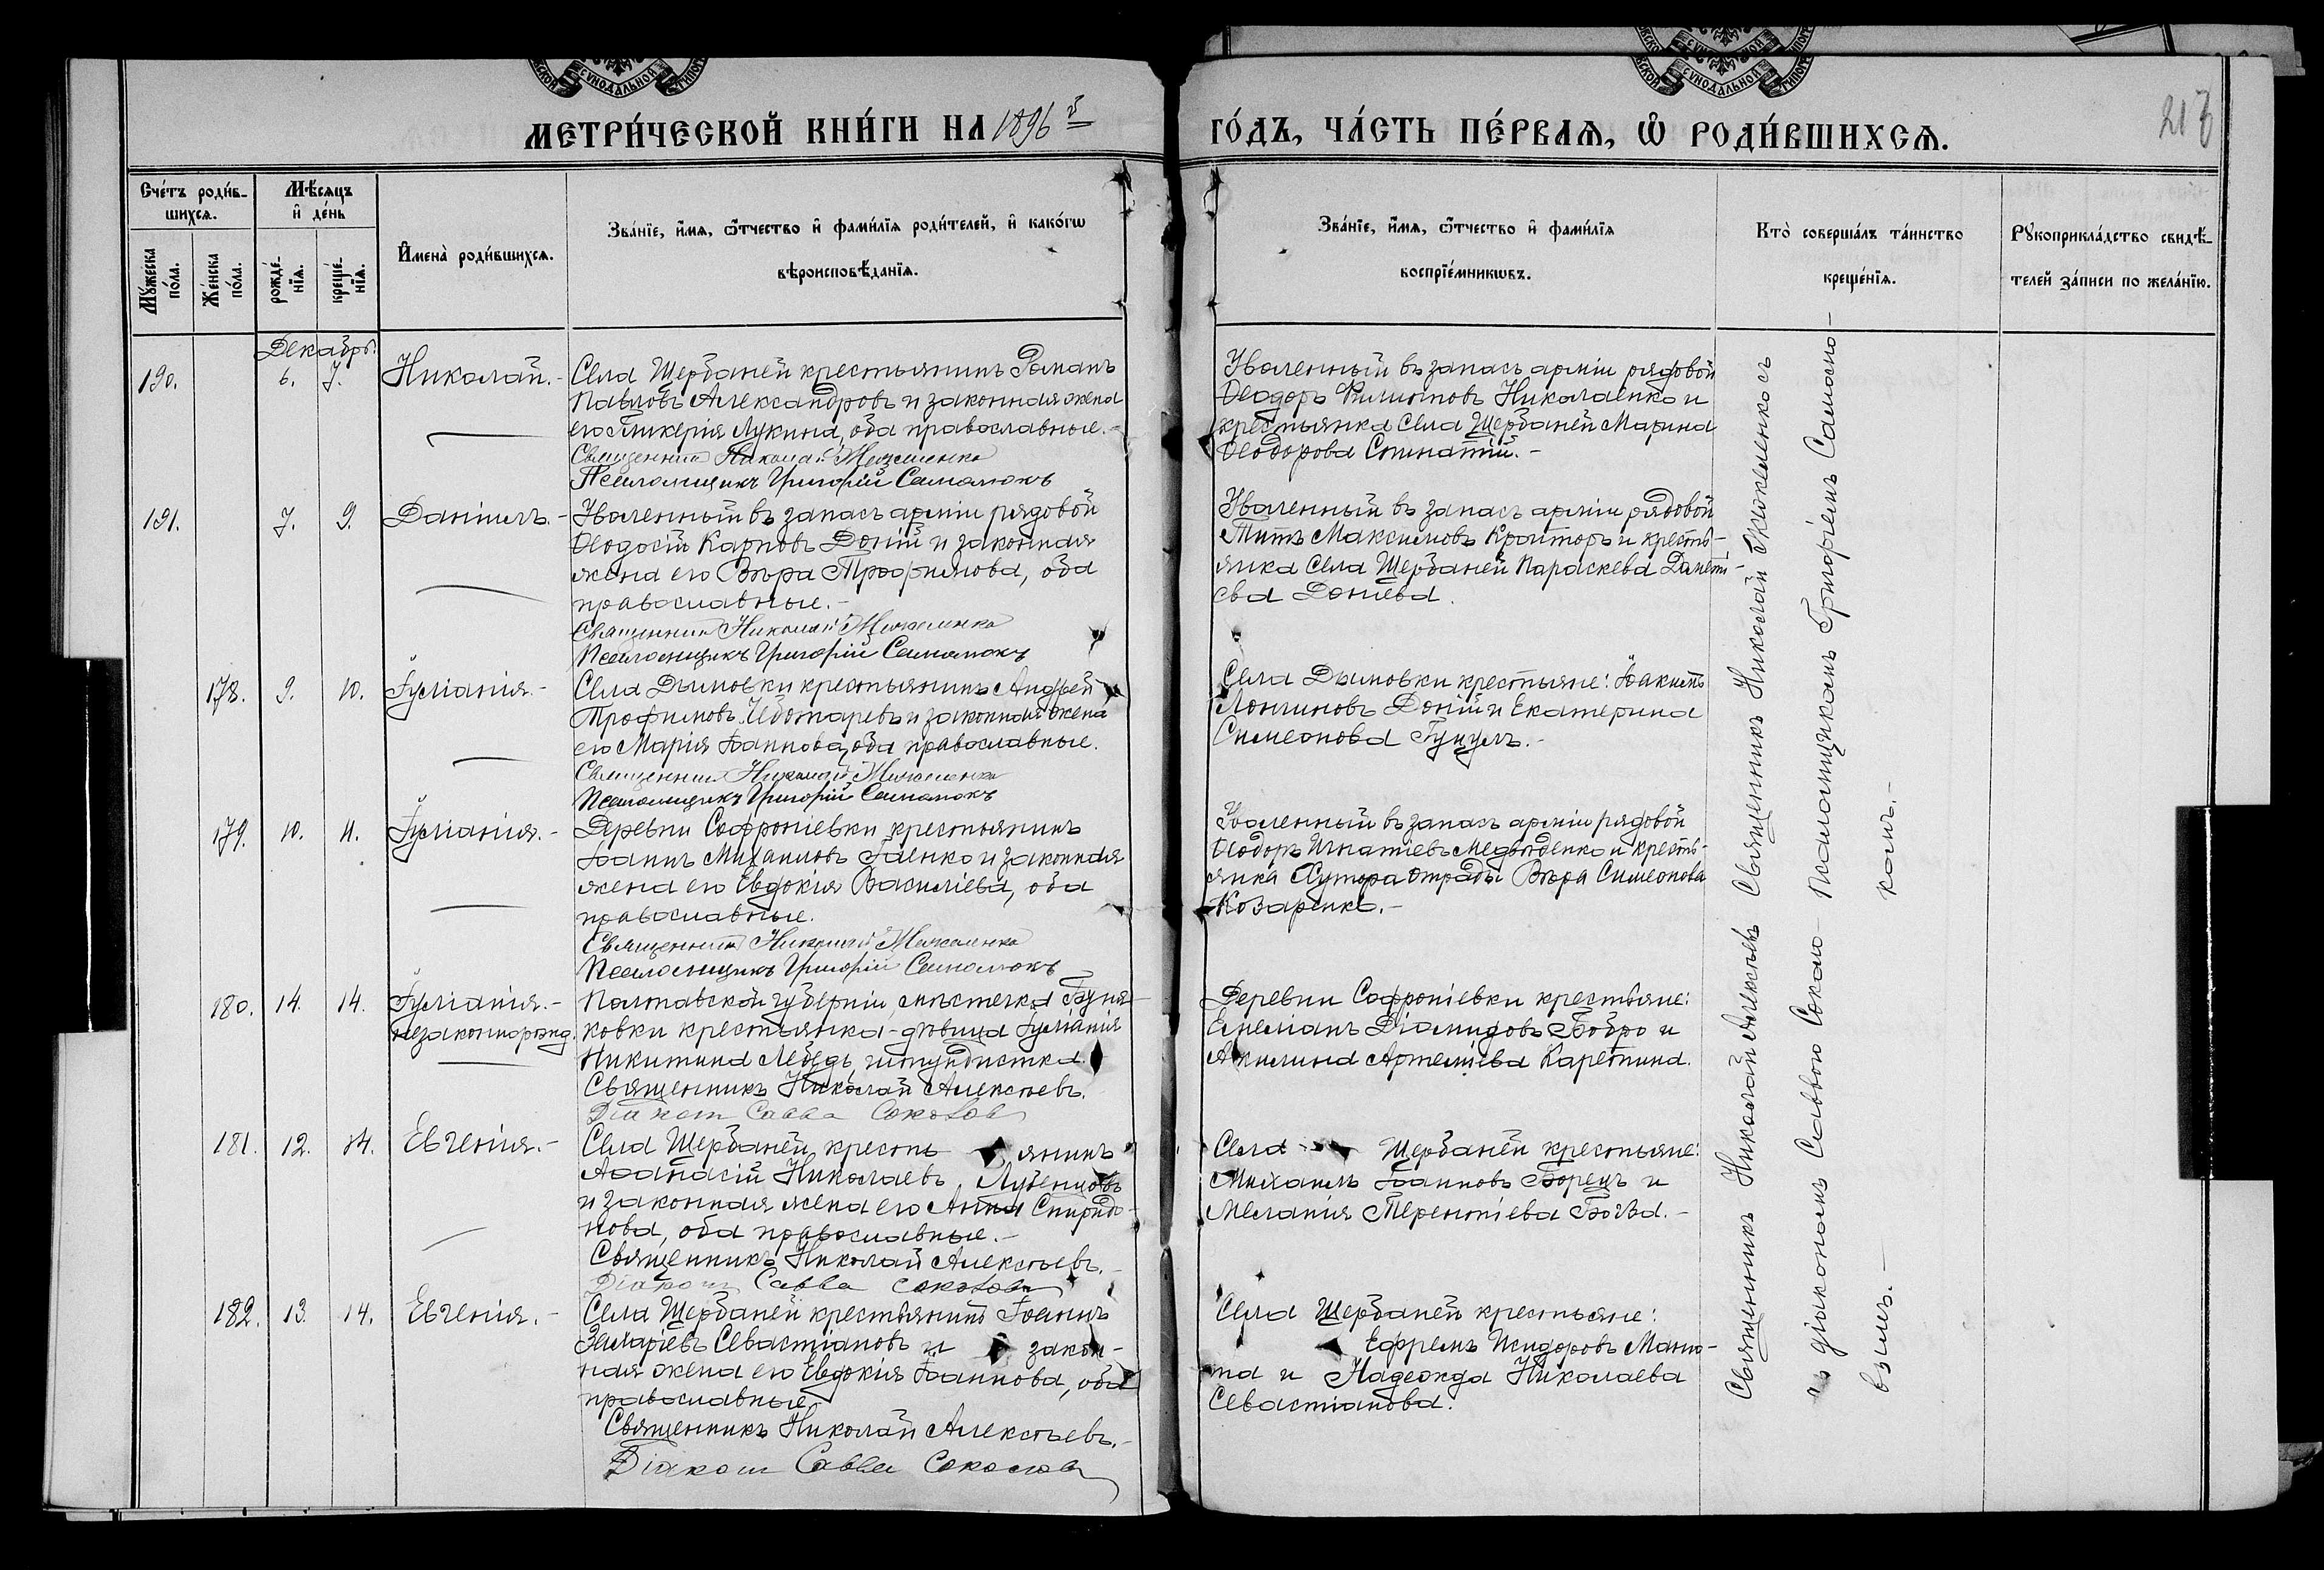 СѴНОДАЛЬНОЙ
СѴНОДАЛЬНОЙ
МЕТРИ́ЧЕСКОЙ КНИ́ГИ НА 1896 й ГО́ДЪ, ЧА́СТЬ ПЕ́РВАЯ, Ѡ РОДИ́ВШИХСЯ.
217
Сче́тъ роди́в-
шихся.
Мѣ́сяцъ
и де́нь
Мꙋ́жеска по́ла.
Же́нска по́ла.
рожде́-нїя.
креще́-нїя.
Имена̀ роди́вшихся.
Зва́нїе, и́мя, ѻ́тчество и фами́лїя роди́телей, и како́гѡ
вѣроисповѣ́данїя.
Зва́нїе, и́мя, ѻ́тчество и фами́лїя
воспрїе́мникѡвъ.
Кто̀ соверша́лъ та́инство
креще́нїя.
Рꙋкоприкла́дство свидѣ́-
телей за́писи по жела́нїю.
Декабрь.
190. 6. 7. Николай.- Села Щербаней крестьянинъ Романъ
Павловъ Александровъ и законная жена
его Гликерія Лукина, оба православные.-
Священникъ Николай
Псаломщикъ Григорій Самолюкъ
Уволенный въ запасъ арміи рядовой
Ѳеодоръ Филиповъ Николаенко и
крестьянка села Щербаней Марина
Ѳеодорова
191. 7. 9. Даніилъ.- Уволенный въ запасъ арміи рядовой
Ѳеодосій Карповъ Доній и законная
жена его Вѣра Трофимова, оба
православные.-
Священникъ Николай
Псаломщикъ Григорій Самолюкъ
Уволенный въ запасъ арміи рядовой
Титъ Максимовъ Крайторъ и кресть-
янка села Щербаней Параскева
ева Доніева.
178. 9. 10. Іуліанія.- Села Дымовки крестьянинъ Андрей
Трофимовъ Чеботаревъ и законная жена
его Марія Іоаннова, оба православные.
Священникъ Николай
Псаломщикъ Григорій Самолюкъ
Села Дымовки крестьяне: Іоакимъ
Лонгиновъ Доній и Екатерина
Симеонова Гуцулъ.-
179. 10. 11. Іуліанія.- Деревни Софроніевки крестьянинъ
Іоаннъ Михаиловъ Гаенко и законная
жена его Евдокія Василіева, оба
православные.
Священникъ Николай
Псаломщикъ Григорій Самолюкъ
Уволенный въ запасъ арміи рядовой
Ѳеодоръ Игнатіевъ Медвѣденко и кресть-
янка Хутора Отрады Вѣра Симеонова
Козаренко.-
180. 14. 14. Іуліанія.-
незаконнорожд.
Полтавской губерніи, мѣстечка
ковки крестьянка-дѣвица Іуліанія
Никитина Лебедь, штундистка.
Священникъ Николай Алексѣевъ.
Діаконъ Савва Соколовъ
Деревни Софроніевки крестьяне:
Емеліанъ Діомидовъ Бобро и
Акилина Артеміева Карепина.
181. 12. 14. Евгенія.- Села Щербаней крестьянинъ
Аѳанасій Николаевъ Лубенцовъ
и законная жена его Анна Спиридо-
нова, оба православные.-
Священникъ Николай Алексѣевъ.-
Діаконъ Савва Соколовъ
Села Щербаней крестьяне:
Михаилъ Іоанновъ Борецъ и
Меланія Терентіева Богза.-
182. 13. 14. Евгенія.- Села Щербаней крестьянинъ Іоаннъ
Захаріевъ Севастіановъ и закон-
ная жена его Евдокія Іоаннова, оба
православные.
Священникъ Николай Алексѣевъ.-
Діаконъ Савва Соколовъ
Села Щербаней крестьяне:
Ефремъ Исидоровъ
и Надежда Николаева
Севастіанова.
Священникъ Николай Алексѣевъ
съ діякономъ Саввою Соколо-
вымъ.-
Священникъ Николай съ
Псаломщикомъ Григоріемъ Самолю-
комъ.-